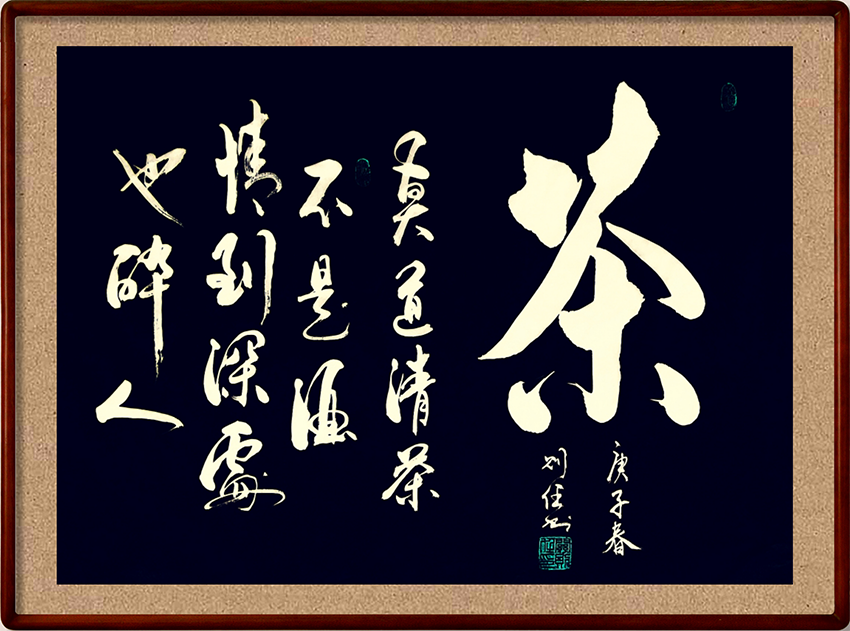 茶
庚子春
刘佳
莫道清茶
不是酒
情到深處
也醉人